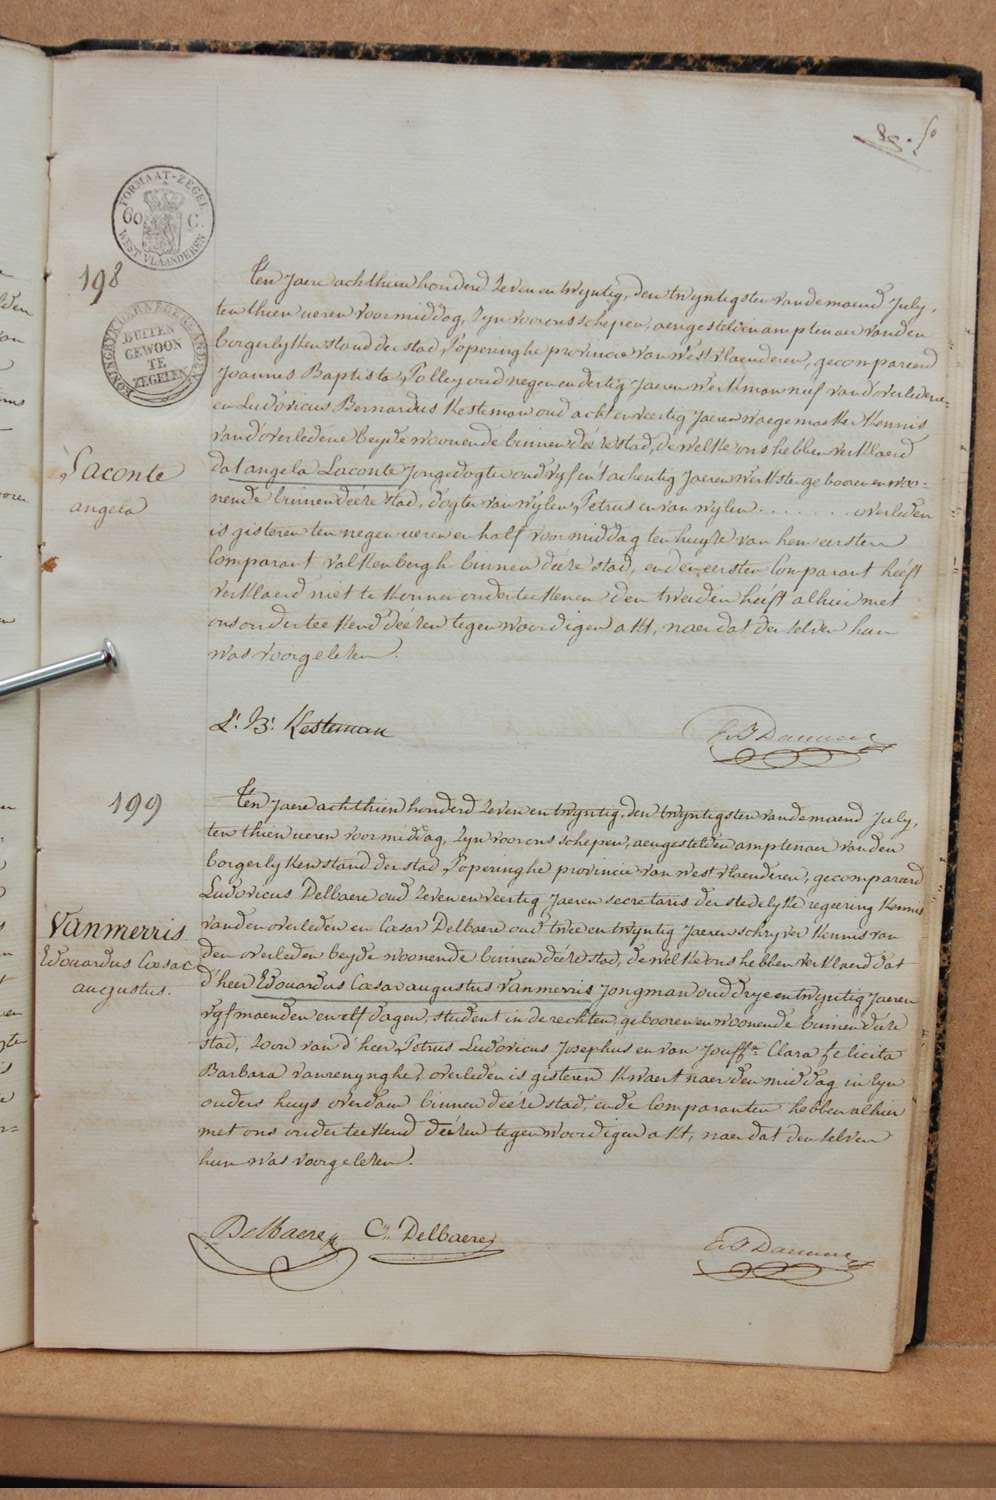 FORMAAT-ZEGEL
60 C.
WEST VLAANDEREN
KONINGRYK DER NEDERLANDEN
BUITEN
GEWOON
TE
ZEGELEN
198
Laconte
angela
Ten Jaere achthien honderd Zeven en twyntig, den twyntigsten vande maend July,
ten thien ueren voormiddag, Zyn voor ons schepen, aengestelden amptenaer van den
borgerlyken stand der stad Poperinghe provincie van West vlaenderen, gecompareerd
Joannes Baptista Polley oud negen en dertig Jaeren werkman nief van d'overledene
en Ludovicus Bernardus Kesteman oud acht en veertig Jaeren waegemaeker Kennis
van d'overledene beyde woonende binnen deéze stad, de welke ons hebben verklaerd
dat angela Laconte Jonge dogter oud vyf en tachentig Jaeren werkster gebooren en woo-
nende binnen deéze stad, dogter van wylen Petrus en van wylen . . . . . . . . overleden
is gisteren ten negen ueren en half voormiddag ten huyze van hem eersten
Comparant valkenbergh binnen deéze stad, en den eersten Comparant heéft
verklaerd niet te konnen onderteekenen den tweeden heeft alhier met
ons onderteekend deézen tegenwoordigen akt, naer dat den selven hun
was voorgelezen.
L: B: Kesteman
199
Vanmerris
Edouardus Cæsar
augustus.
Ten Jaere achthien honderd Zeven en twyntig, den twyntigsten vande maend July,
ten thien ueren voormiddag, Zyn voor ons schepen, aengestelden amptenaer van den
borgerlyken stand der stad Poperinghe provincie van West vlaenderen, gecompareerd
Ludovicus Delbaere oud Zeven en veertig Jaeren secretaris der stedelyke regeering Kennis
van den overleden en Cæsar Delbaere oud twee en twyntig Jaeren schryver Kennis van
den overleden beyde woonende binnen deéze stad, de welke ons hebben verklaerd dat
d'heer Edouardus Cæsar augustus Vanmerris Jongman oud drye en twyntig Jaeren
vyf maenden en elf dagen, student in de rechten, gebooren en woonende binnen deéze
stad, Zoon van d'heer Petrus Ludovicus Josephus en van Jouff.e Clara felicita
Barbara Vanrenynghe, overleden is gisteren Kwaert naer den middag in Zyn
ouders huys overdam binnen deéze stad, en de Comparanten hebben alhier
met ons onderteekend deézen tegenwoordigen akt, naer dat den selven
hun was voorgelezen.
Delbaere
Cr. Delbaere